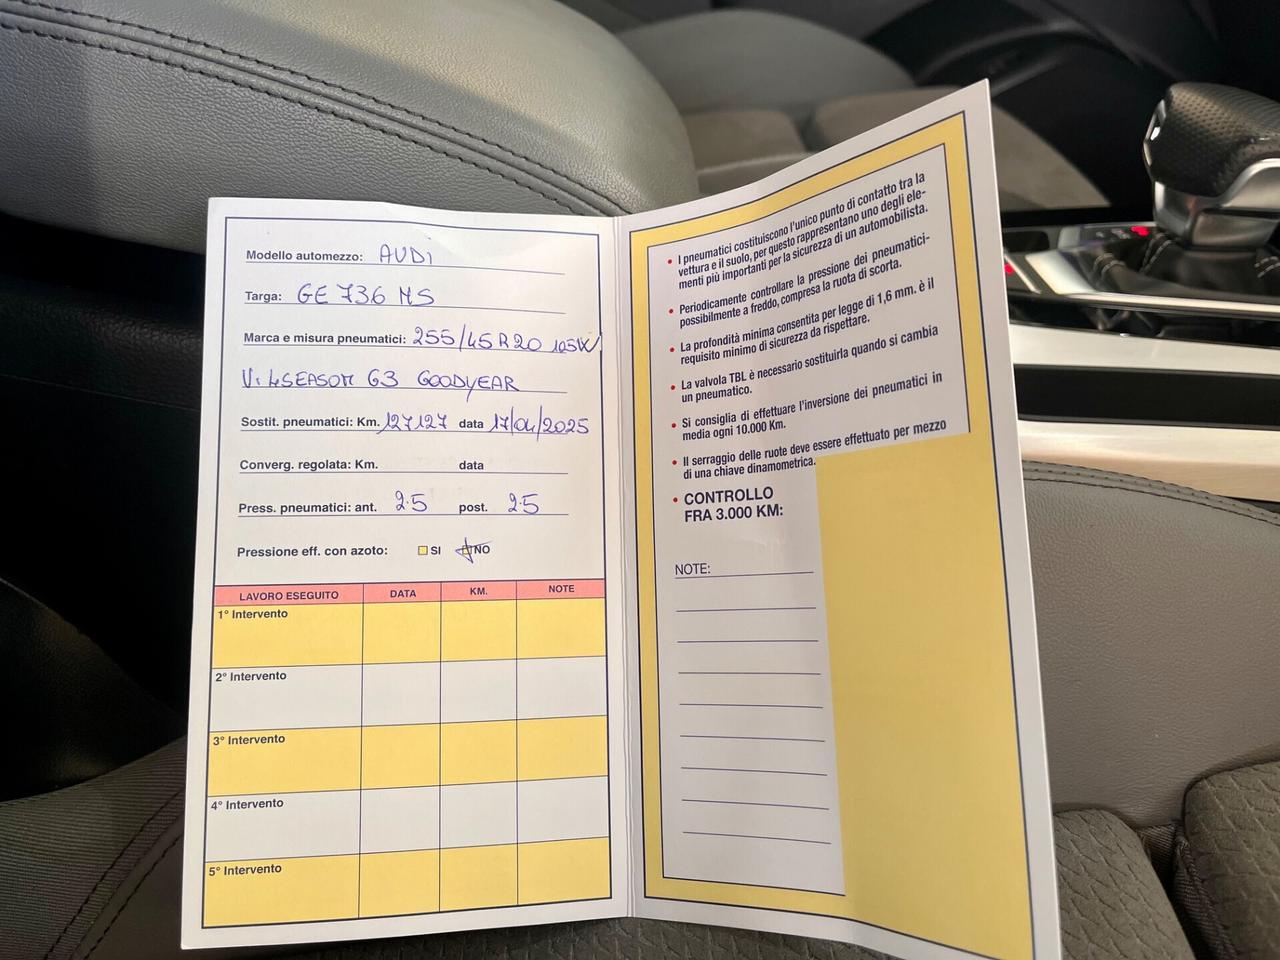 Modello automezzo: AUDi
Targa: GE 736 MS
Marca e misura pneumatici: 255/45 R 20 105W
V. 4SEASON G3 GOODYEAR
Sostit. pneumatici: Km. 127127 data 17/04/2025
Converg. regolata: Km. data
Press. pneumatici: ant. 2.5 post. 2.5
Pressione eff. con azoto: SI NO
LAVORO ESEGUITO DATA KM. NOTE
1° Intervento
2° Intervento
3° Intervento
4° Intervento
5° Intervento
• I pneumatici costituiscono l'unico punto di contatto tra la
vettura e il suolo, per questo rappresentano uno degli ele-
menti più importanti per la sicurezza di un automobilista.
• Periodicamente controllare la pressione dei pneumatici-
possibilmente a freddo, compresa la ruota di scorta.
• La profondità minima consentita per legge di 1,6 mm. è il
requisito minimo di sicurezza da rispettare.
• La valvola TBL è necessario sostituirla quando si cambia
un pneumatico.
• Si consiglia di effettuare l'inversione dei pneumatici in
media ogni 10.000 Km.
• Il serraggio delle ruote deve essere effettuato per mezzo
di una chiave dinamometrica.
• CONTROLLO
FRA 3.000 KM:
NOTE: